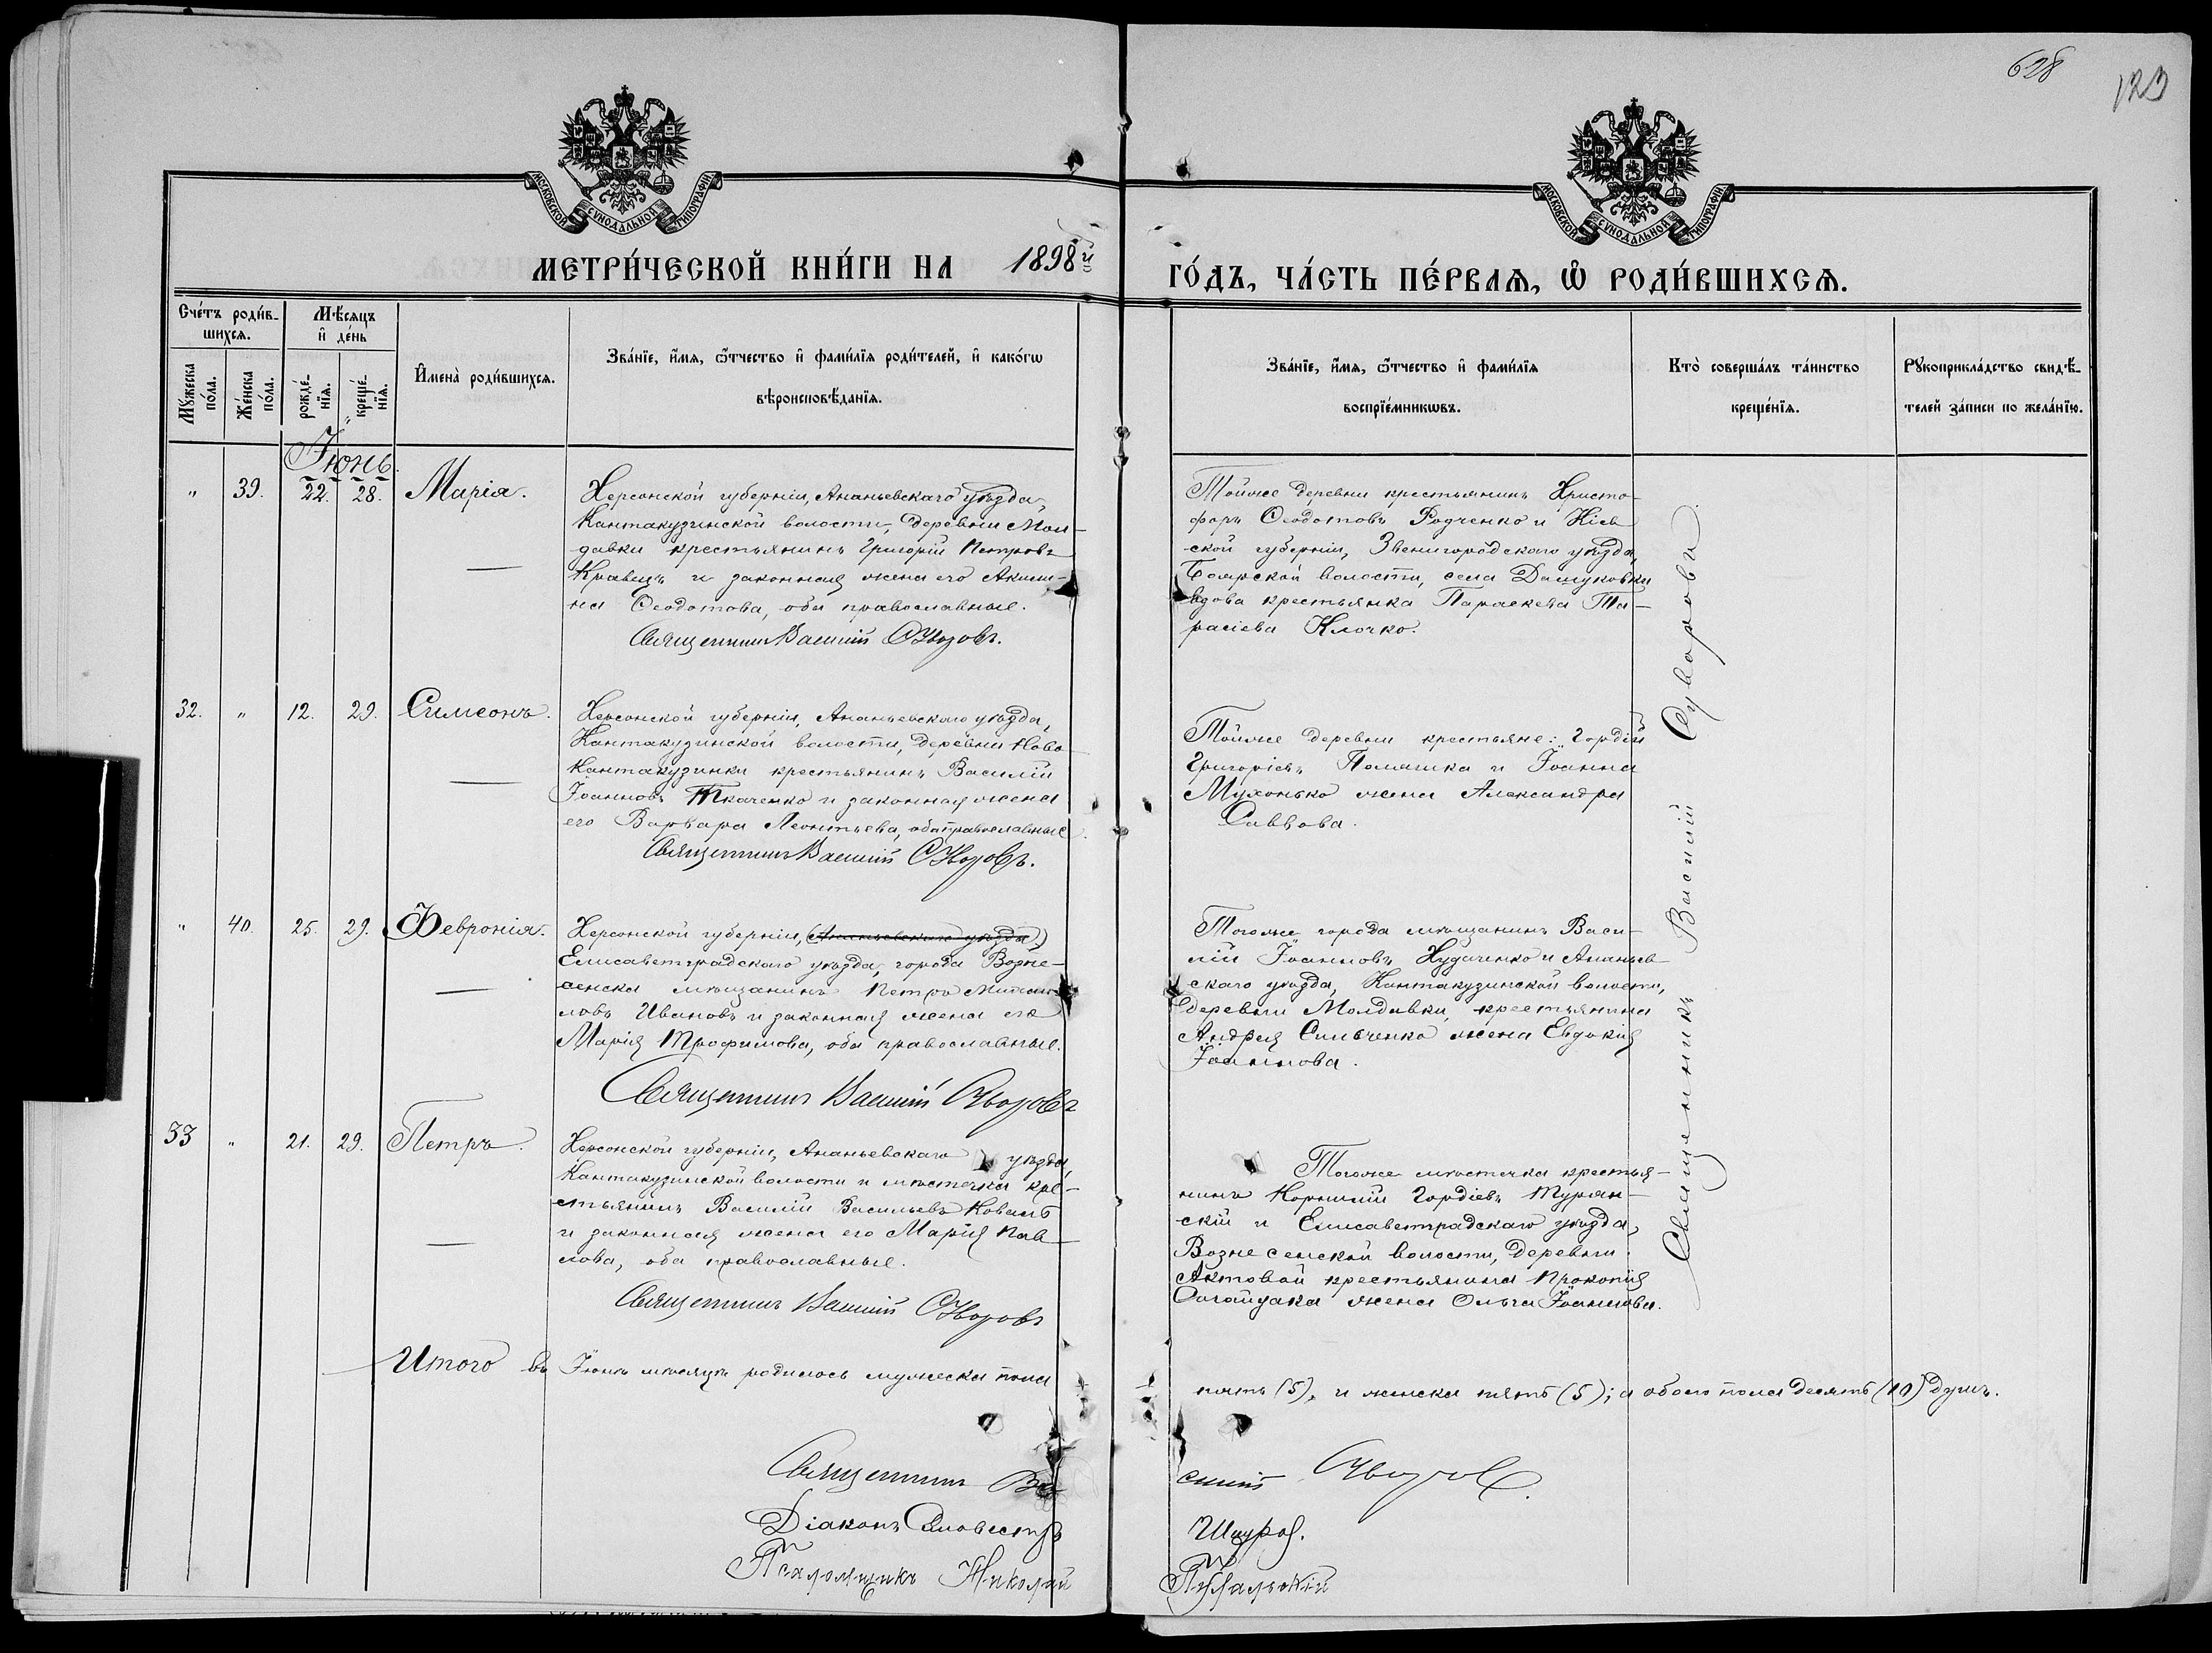 628
123
МОСКОВСКОЙ СѴНОДАЛЬНОЙ ТИПОГРАФІИ
МОСКОВСКОЙ СѴНОДАЛЬНОЙ ТИПОГРАФІИ
МЕТРИ́ЧЕСКОЙ КНИ́ГИ НА 1898й
ГО́ДЪ, ЧА́СТЬ ПЕ́РВАѦ, Ѡ҆ РОДИ́ВШИХСѦ.
Сче́тъ роди́в-
шихсѧ.
Мѣ́сѧцъ
и҆ де́нь
Мꙋ́жеска
по́ла.
Же́нска
по́ла.
рожде́-
нїѧ.
креще́-
нїѧ.
И҆мена̀ роди́вшихсѧ.
Зва́нїе, и҆́мѧ, ѻ҆́тчество и҆ фами́лїѧ роди́телей, и҆ како́гѡ
вѣроисповѣ́данїѧ.
Зва́нїе, и҆́мѧ, ѻ҆́тчество и҆ фами́лїѧ
воспрїе́мникѡвъ.
Кто̀ соверша́лъ та́инство
креще́нїѧ.
Рꙋкоприкла́дство свидѣ́-
телей за́писи по жела́нїю.
Іюнь.
" 39. 22. 28. Марія.
Херсонской губерніи, Ананьевскаго уѣзда,
Кантакузинской волости, деревни Мол-
давки крестьянинъ Григорій Петровъ
Кравецъ и законная жена его Акили-
на Ѳеодотова, оба православные.
Священникъ Василій Суворовъ.
Тойже деревни крестьянинъ Христо-
форъ Ѳеодотовъ Родченко и Кіев
ской губерніи, Звенигородскаго уѣзда,
Боярской волости, села Дашуковки
вдова крестьянка Параскева Та-
расіева Клочко.
32. " 12. 29. Симеонъ.
Херсонской губерніи, Ананьевскаго уѣзда,
Кантакузинской волости, деревни Ново
Кантакузинки крестьянинъ Василій
Іоанновъ Ткаченко и законная жена
его Варвара Леонтьева, оба православные.
Священникъ Василій Суворовъ.
Тойже деревни крестьяне: Гордій
Григоріевъ и Іоанна
жена Александра
Саввова.
" 40. 25. 29. Февронія.
Херсонской губерніи, (Ананьевскаго уѣзда)
Елисаветградскаго уѣзда, города Возне-
сенска мѣщанинъ Петръ
ловъ Ивановъ и законная жена его
Марія Трофимова, оба православные.
Священникъ Василій Суворовъ
Тогоже города мѣщанинъ Васи-
лій Іоанновъ Худаченко и Ананьев
скаго уѣзда, Кантакузинской волости,
деревни Молдавки, крестьянина
Андрея Сильченко жена Евдокія
Іоаннова.
33 " 21. 29. Петръ.
Херсонской губерніи, Ананьевскаго уѣзда,
Кантакузинской волости и мѣстечка кре-
стьянинъ Василій Васильевъ Коваль
и законная жена его Марія Пав-
лова, оба православные.
Священникъ Василій Суворовъ
Тогоже мѣстечка крестья-
нинъ Корнилій Гордіевъ Турян-
скій и Елисаветградскаго уѣзда,
Вознесенской волости, деревни
Актовой крестьянина Прокопія
жена Ольга Іоаннова.
Священникъ Василій Суворовъ.
Итого въ Іюнѣ мѣсяцѣ родилось мужеска пола
пять (5), и женска пять (5); а обоего пола десять (10) душъ.
Священникъ Ва
силій Суворовъ.
Діаконъ Сильвестръ
Щуров.
Псаломщикъ Николай